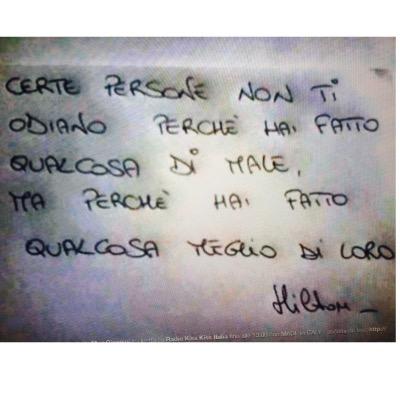 CERTE PERSONE NON Ti
ODIANO PERCHÈ HAi FATTO
QUALCOSA Di MALE,
MA PERCHÈ HAi FATTO
QUALCOSA MEGLIO Di LORO
Hilton
Radio Kiss Kiss Italia fino alle 13:00 con MADE in ITALY